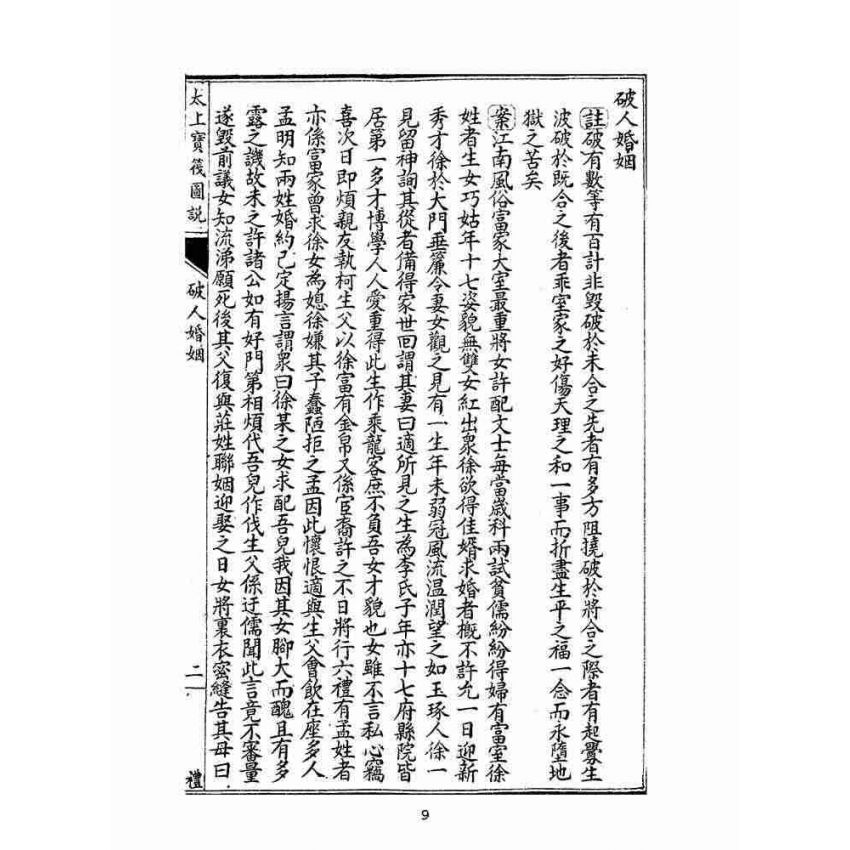 破人婚姻
註破有數等有百計非毀破於未合之先者有多方阻撓破於將合之際者有起釁生
波破於既合之後者乖室家之好傷天理之和一事而折盡生平之福一念而永墮地
獄之苦矣
案江南風俗富家大室最重將女許配文士每當歲科兩試貧儒紛紛得婦有富室徐
姓者生女巧姑年十七姿貌無雙女紅出衆徐欲得佳婿求婚者概不許允一日迎新
秀才徐於大門垂簾令妻女觀之見有一生年未弱冠風流温潤望之如玉琢人徐一
見留神詢其從者備得家世回謂其妻曰適所見之生為李氏子年亦十七府縣院皆
居第一多才博學人人愛重得此生作乘龍客庶不負吾女才貌也女雖不言私心竊
喜次日即煩親友執柯生父以徐富有金帛又係宦裔許之不日將行六禮有孟姓者
亦係富家曾求徐女為媳徐嫌其子蠢陋拒之孟因此懷恨適與生父會飲在座多人
孟明知兩姓婚約已定揚言謂衆曰徐某之女求配吾兒我因其女腳大而醜且有多
露之譏故未之許諸公如有好門第相煩代吾兒作伐生父係迂儒聞此言竟不審量
遂毀前議女知流涕願死後其父復與莊姓聯姻迎娶之日女將裏衣密縫告其母曰
太上寶筏圖說
破人婚姻
二
禮
9